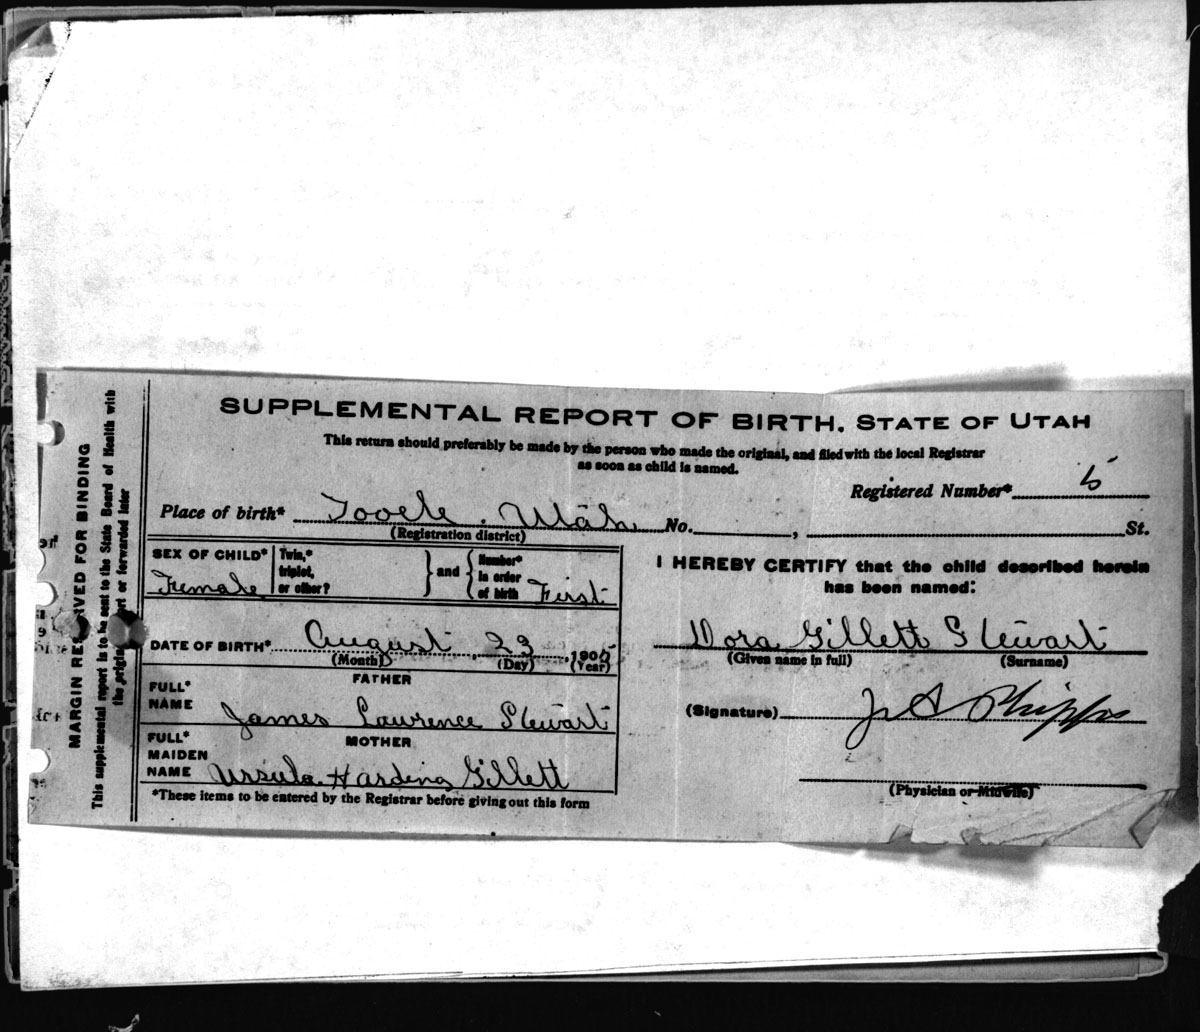 SUPPLEMENTAL REPORT OF BIRTH. STATE OF UTAH
This return should preferably be made by the person who made the original, and filed with the local Registrar
as soon as child is named.
Registered Number* 5
Place of birth* Tooele. Utah No. , St.
(Registration district)
SEX OF CHILD* Female
Twin,*
triplet,
or other?
} and {
Number*
in order
of birth First
DATE OF BIRTH* August 23, 1905
(Month) (Day) (Year)
FATHER
FULL*
NAME James Lawrence Stewart
MOTHER
FULL*
MAIDEN
NAME Ursula Harding Gillett
*These items to be entered by the Registrar before giving out this form
I HEREBY CERTIFY that the child described herein
has been named:
Dora Gillett Stewart
(Given name in full) (Surname)
(Signature) J A Phipps
(Physician or Midwife)
MARGIN RESERVED FOR BINDING
This supplemental report is to be sent to the State Board of Health with
the original or forwarded later